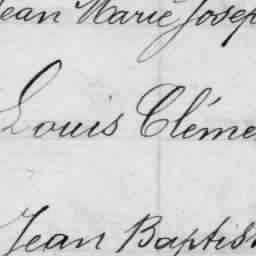 Jean Marie Josep
Louis Cléme
Jean Baptis